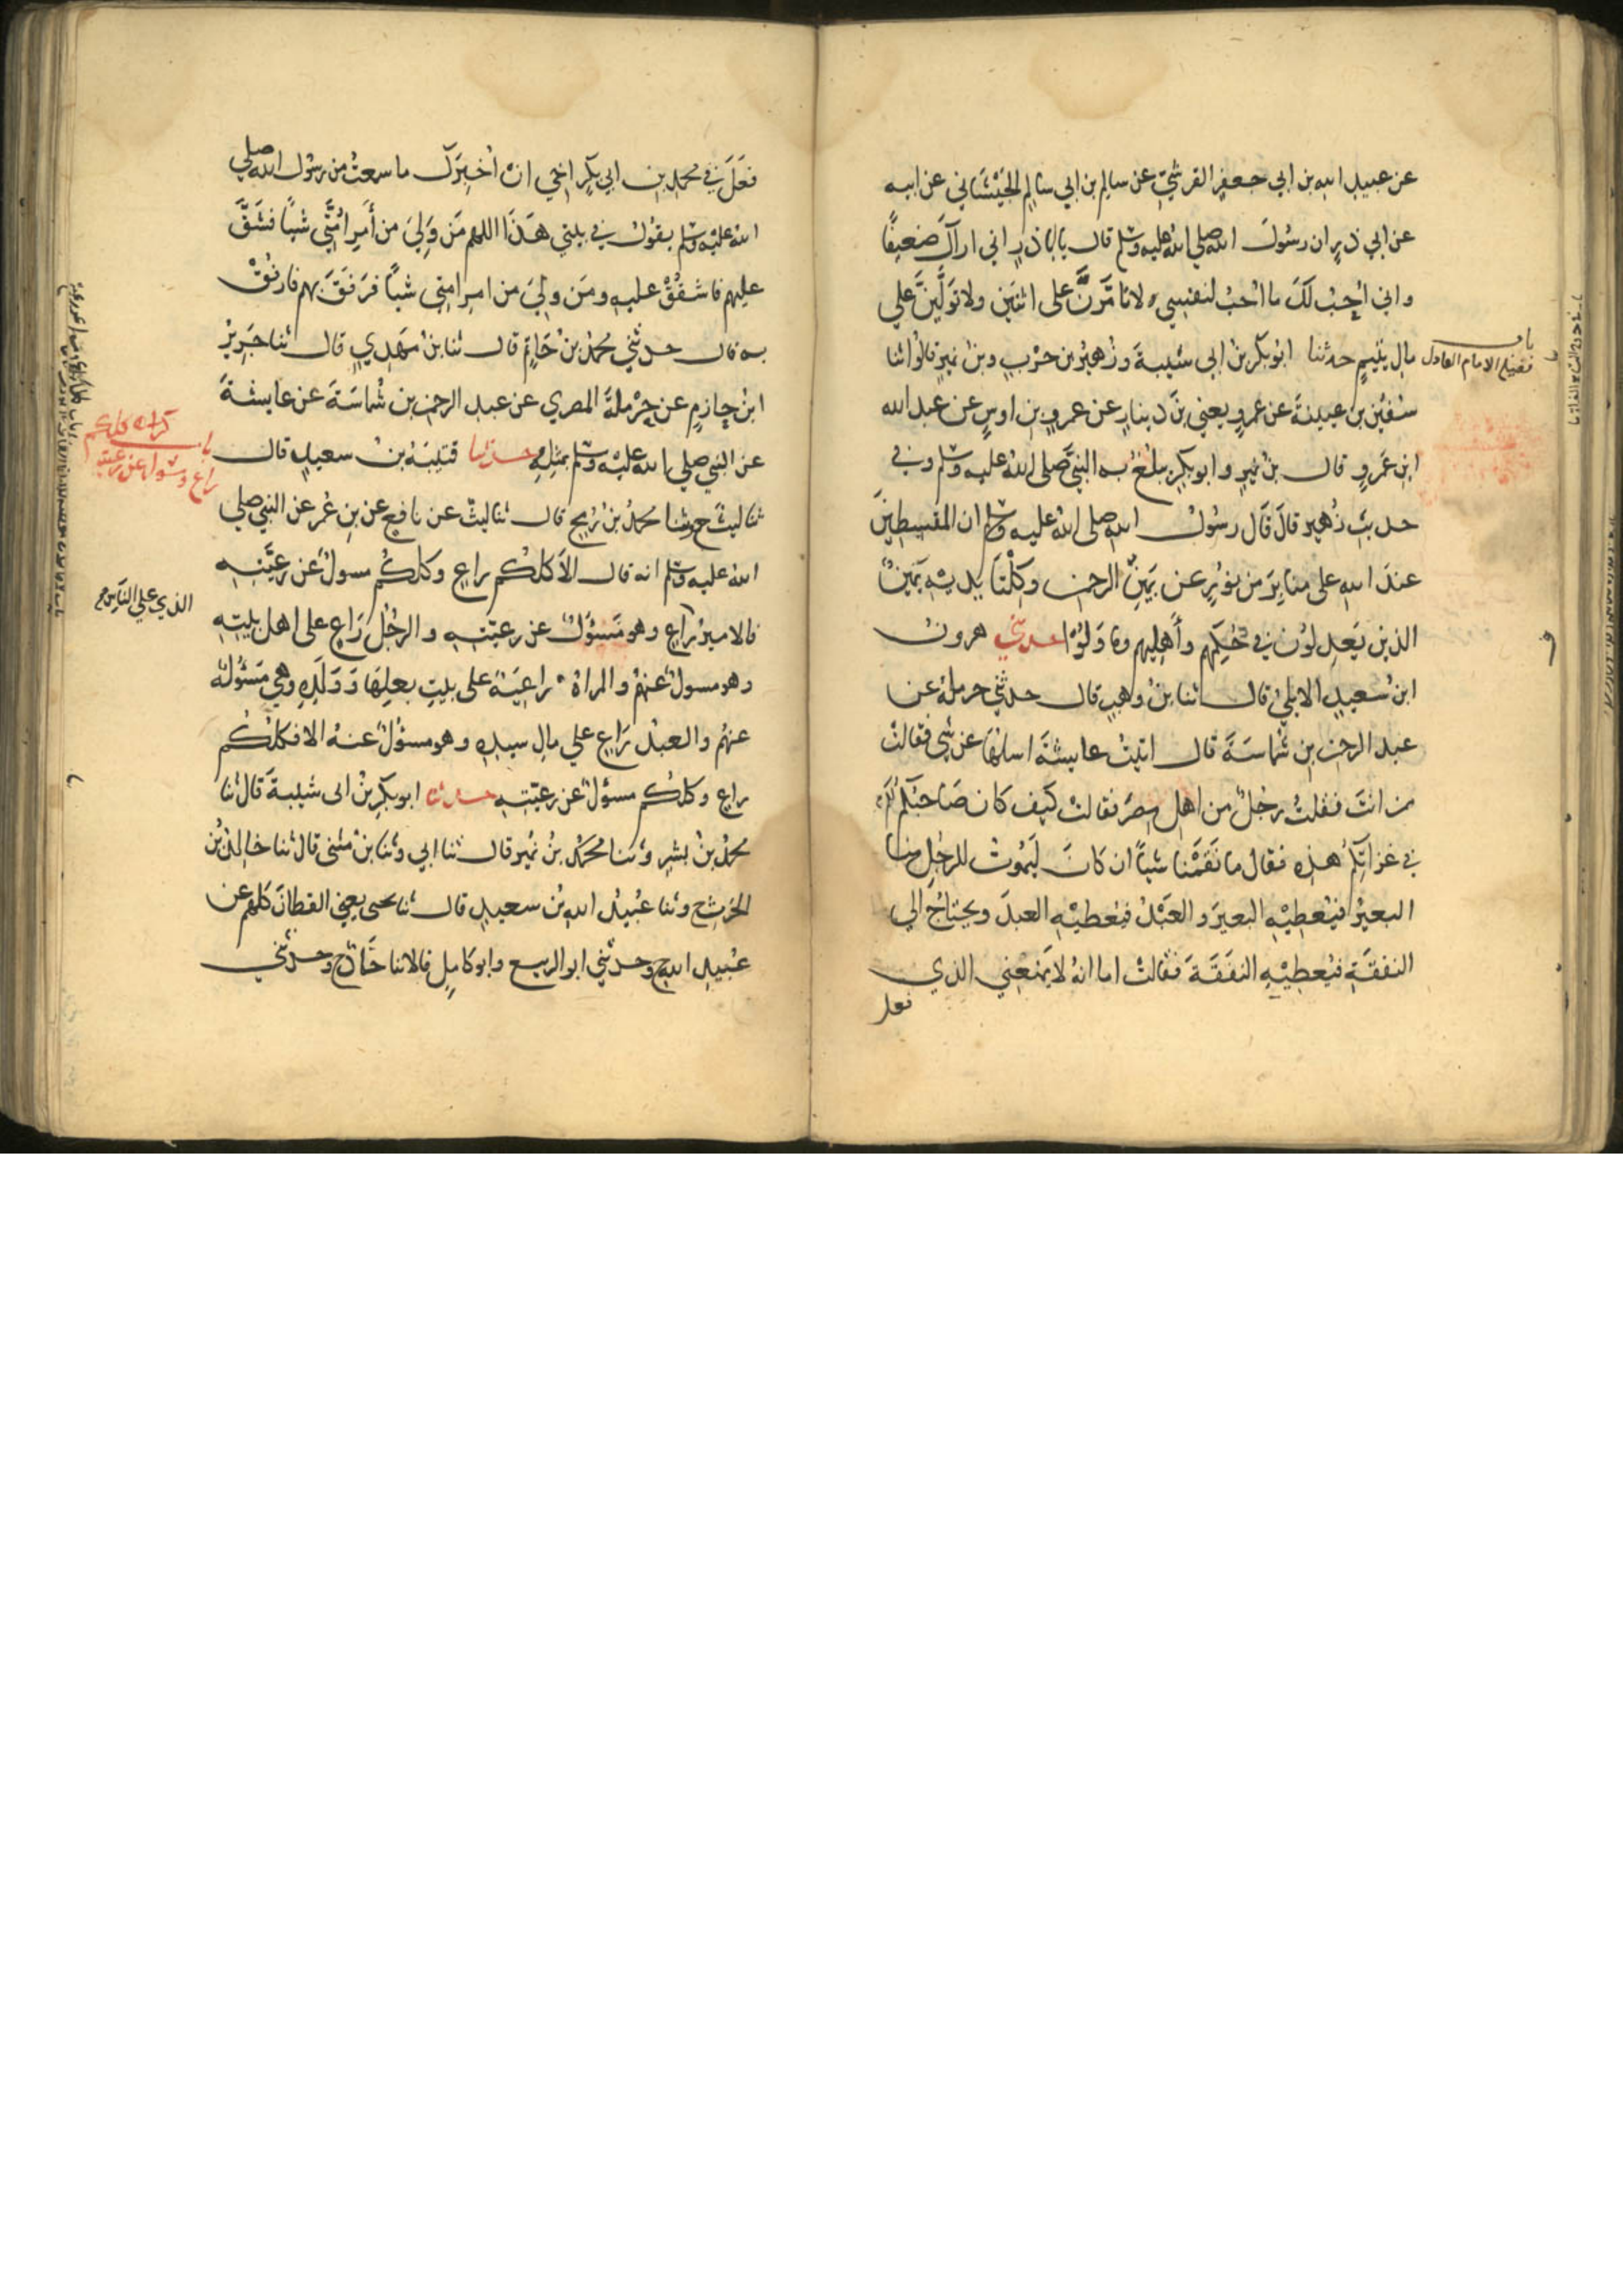 عن عبيد الله بن ابي جعفر القرشي عن سالم بن ابي سالم الجيشاني عن ابيه
عن ابي ذر ان رسول الله صلى الله عليه وسلم قال يابا ذر اني اراك ضعيفا
واني احب لك ما احب لنفسي لا تامرن على اثنين ولا تولين على
مال يتيم حدثنا ابو بكر بن ابي شيبة وزهير بن حرب وبن نمير قالوا ثنا
باب
فضيلة الامام العادل
سفين بن عيينة عن عمرو يعني بن دينار عن عمرو بن اوس عن عبد الله
ابن عمرو قال بن نمير وابو بكر يبلغ به النبي صلى الله عليه وسلم وفي
حديث زهير قال قال رسول الله صلى الله عليه وسلم ان المقسطين
عند الله على منابر من نور عن يمين الرحمن وكلتا يديه يمين
الذين يعدلون في حكمهم وأهليهم وما ولوا حدثني هرون
ابن سعيد الايلي قال ثنا بن وهب قال حدثني حرملة عن
عبد الرحمن بن شماسة قال اتيت عايشة اسالها عن شي فقالت
من انت فقلت رجل من اهل مصر فقالت كيف كان صاحبكم لكم
في غزاتكم هذه فقال ما نقمنا شيا ان كان ليموت للرجل منا
البعير فيعطيه البعير والعبد فيعطيه العبد ويحتاج الى
النفقة فيعطيه النفقة فقالت اما انه لا يمنعني الذي
فعل
فعل في محمد بن ابي بكر اخي ان اخبرك ما سمعت من رسول الله صلى
الله عليه وسلم يقول في بيتي هذا اللهم من ولي من أمر امتي شيا فشق
عليهم فاشقق عليه ومن ولي من امر امتي شيا فرفق بهم فارفق
به قال حدثني محمد بن حاتم قال ثنا بن مهدي قال ثنا جرير
ابن حازم عن حرملة المصري عن عبد الرحمن بن شماسة عن عايشة
عن النبي صلى الله عليه وسلم بمثله حدثنا قتيبة بن سعيد قال
باب
كلكم
راع ومسئول عن رعيته
ثنا ليث ح وثنا محمد بن رمح قال ثنا ليث عن نافع عن بن عمر عن النبي صلى
الله عليه وسلم انه قال الا كلكم راع وكلكم مسول عن رعيته
فالامير راع وهو مسؤل عن رعيته والرجل راع على اهل بيته
الذي على الناس
وهو مسول عنهم والمراة راعية على بيت بعلها وولده وهي مسؤلة
عنهم والعبد راع على مال سيده وهو مسؤل عنه الا فكلكم
راع وكلكم مسؤل عن رعيته حدثنا ابو بكر بن ابى شيبة قال ثنا
محمد بن بشر وثنا محمد بن نمير قال ثنا ابي وثنا بن مثنى قال ثنا خالد بن
الحرث ح وثنا عبيد الله بن سعيد قال ثنا يحيى يعني القطان كلهم عن
عبيد الله ح وحدثني ابو الربيع وابو كامل قالا ثنا حماد ح وحدثني